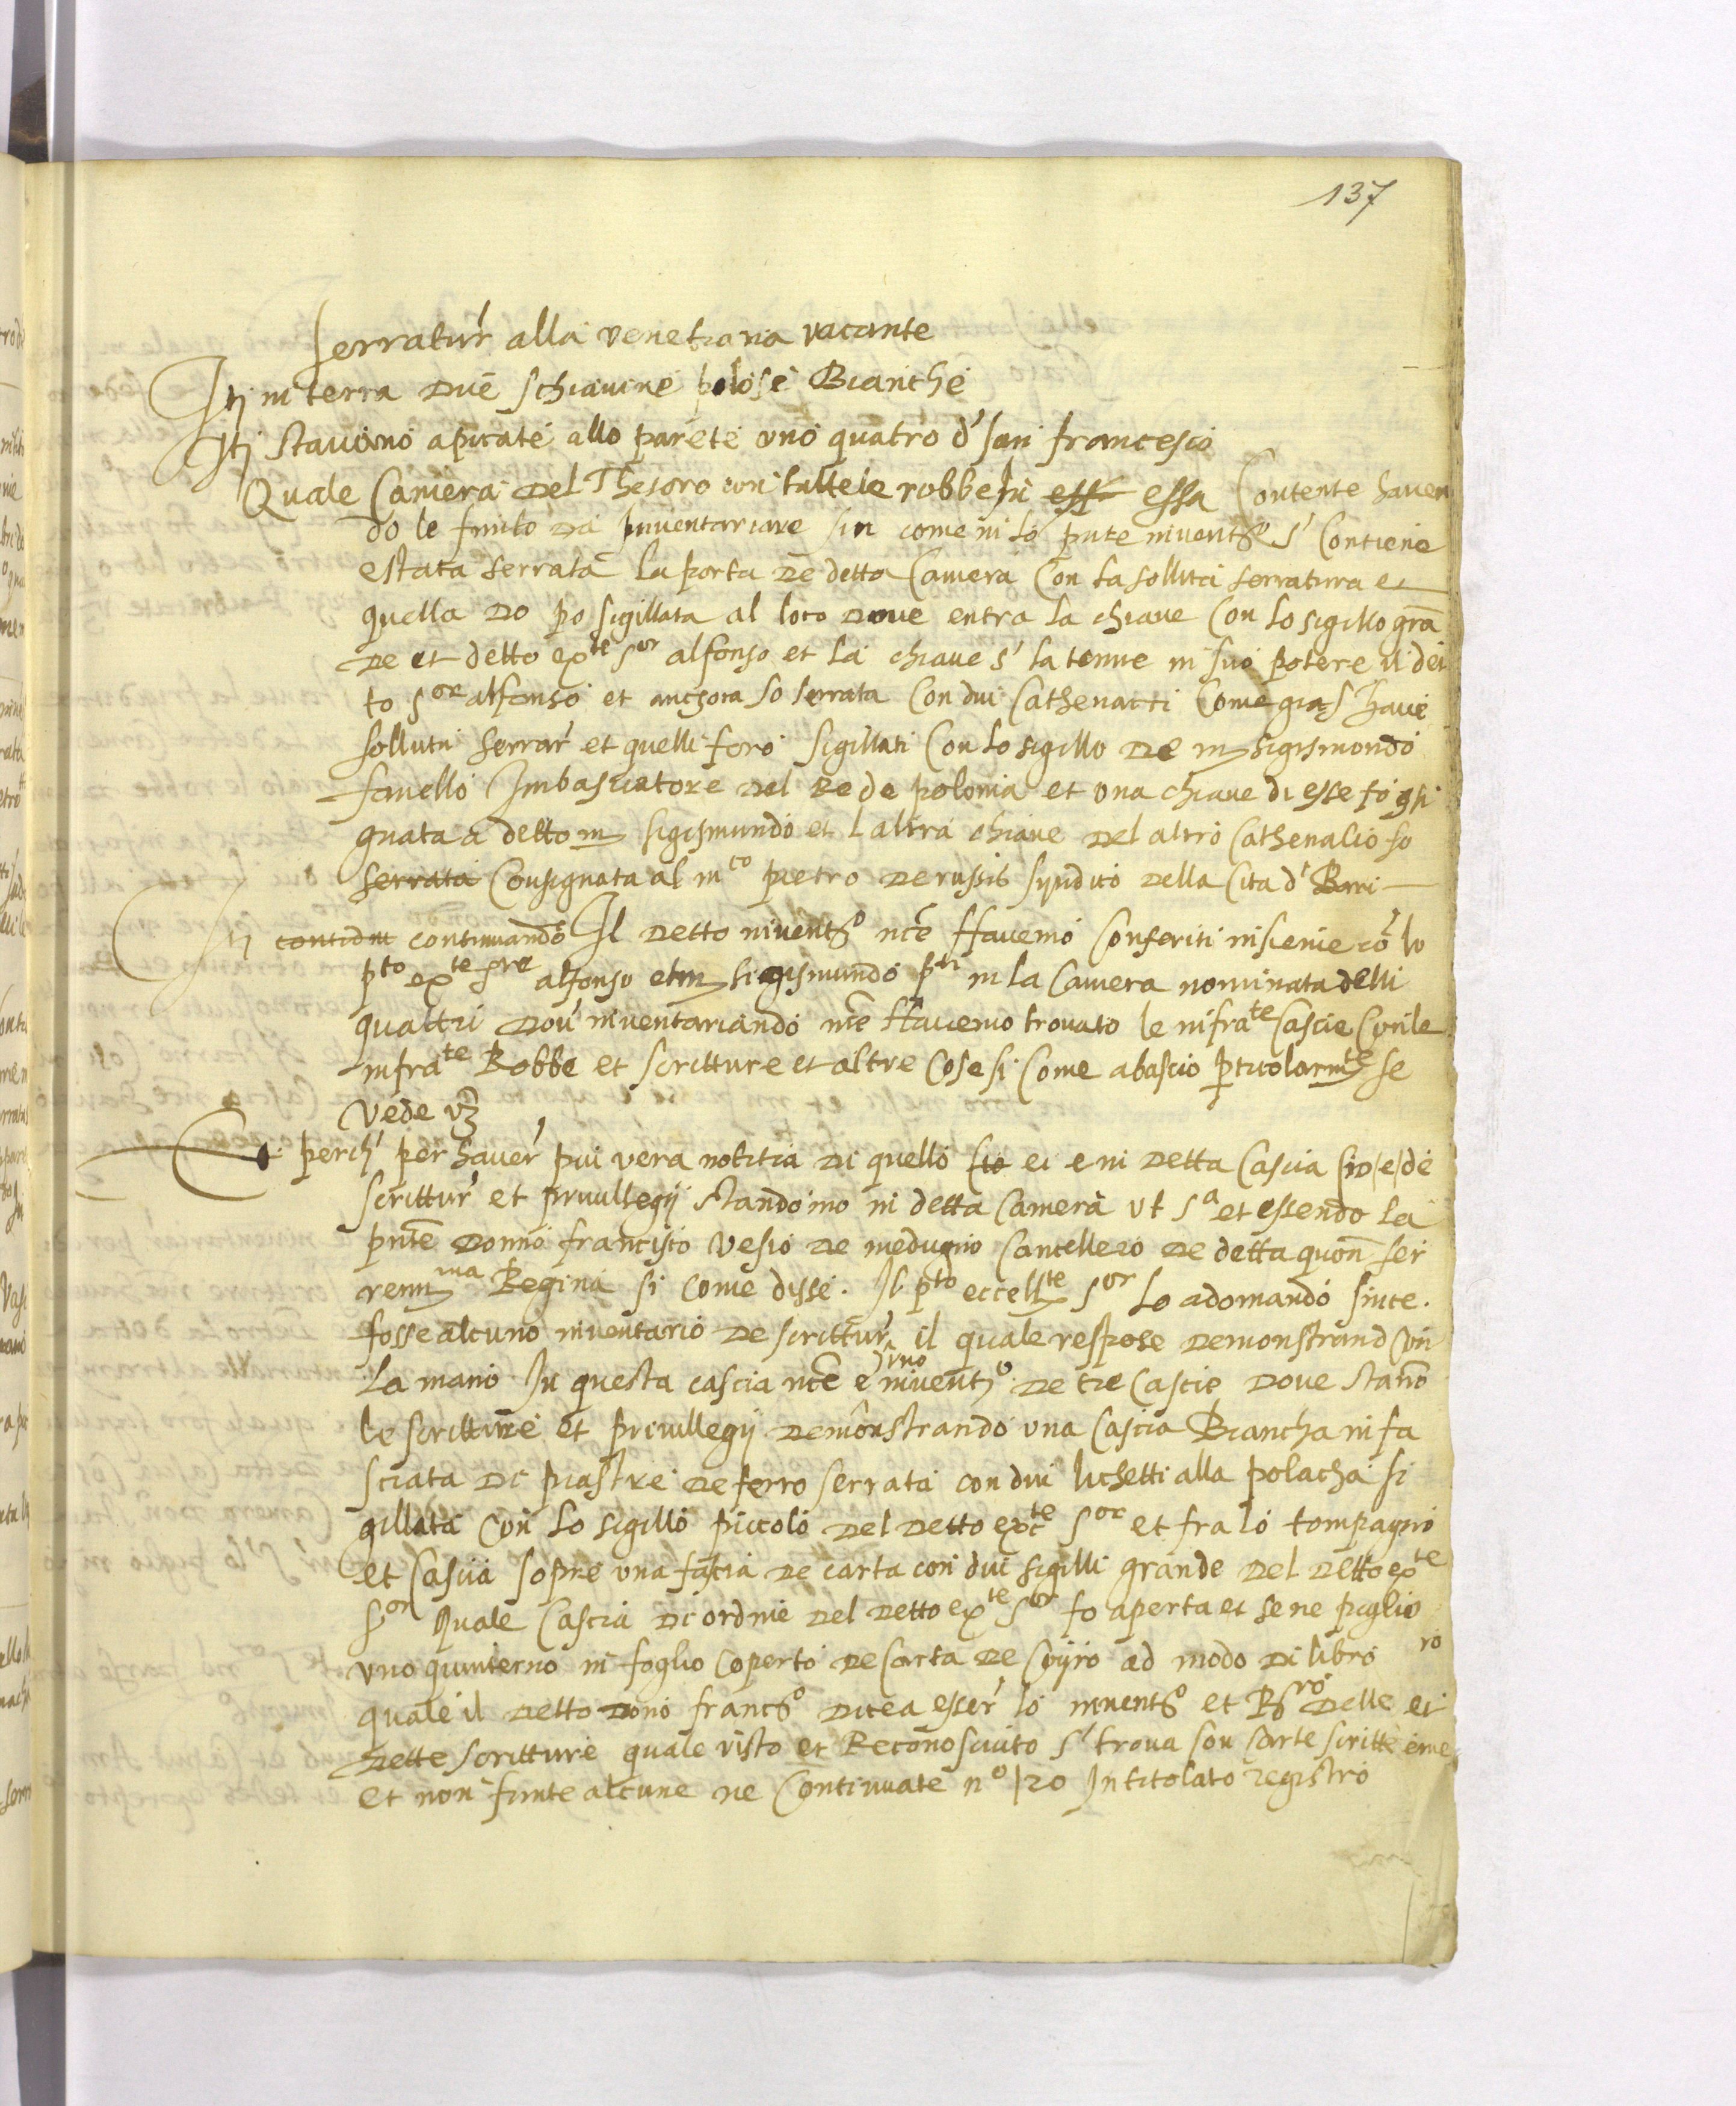 137
serratur' alla venetiana vacante
Itj in terra due schiavine pelose Bianche
Itj stavono apicate allo parete uno quatro d' san francesco
Quale Camera del Thesoro con tutte le robbe in ess essa Contente haven
do le finito da inventariare si come in lo pnte invent.o s' Contiene
estata serrata la porta de detta Camera Con la sollita serratura et
quella do po sigillata al loco dove entra la chiave Con lo sigillo gra
de et detto ex.te s.or alfonso et la chiave s' la tenne in suo potere il det
to s.or alfonso et anchora fo serrata Con dui Cathenacci Come gia s' have
sollutu serrar' et quelli foro sigillati Con lo sigillo de m sigismondo
fanello Imbasciatore del Re de polonia et una chiave di esse fo gsi
gnata a detto m sigismundo et l altra chiave del altro Cathenalio fo
serrata Consignata al m.co pietro de russis syndico della Cita d' Bari
Itj contidnt continuando Il detto invent.o nce Havemo Conferiti insieme co' lo
p.to ex.te s.re alfonso et m sigismundo p.ti in la Camera nominata delli
quattri dov' inventariando nce Havemo trovato le infra.te Cascie Con le
infra.te Robbe et scritture et altre Cose si Come abascio pticolarm.te se
Vede vz
Et perch' per haver' piu vera notitia di quello ei e in detta Cascia de
scrittur' et privillegij standono in detta Camera ut s.a et essendo la
pnte Donno francisco Vesio de medugno Cancellero de detta quon ser
renm.ma Regina si come disse. Il p.to eccell.te s.or lo adomando si nce
fosse alcuno inventario de scrittur' il quale respose demonstrand Con
la mano In questa cascia nce e uno invent.o de tre Cascie dove stano
le scritture et privillegij demonstrando una Cascia Biancha infa
sciata di piastre de ferro serrata con dui lichetti alla polacha si
gillata Con lo sigillo piccolo del detto ex.te s.or et fra lo compagno
et Cascia sopre una facia de carta con dui sigilli grande del detto ex.te
s.or Quale Cascia di ordine del detto ex.te s.or fo aperta et se ne piglio
uno quinterno in foglio coperto de Carta de Coyro ad modo di libro
ro
quale il detto dono franc.o dicea esser' lo invent.o et R.ro delle et
dette scritture quale visto et Reconosciuto s' trova son Carte scritte
et non finte alcune ne Continuate n.o 120 Intitolato registro